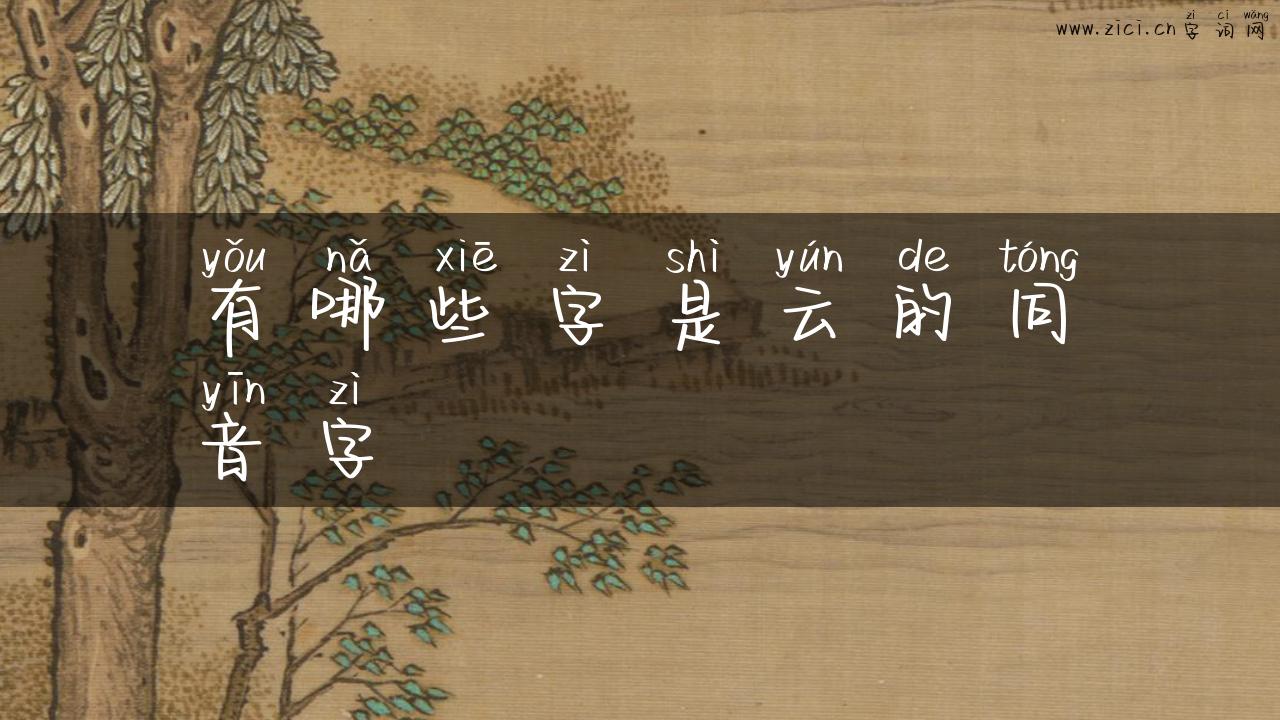 www.zici.cn zì cí wǎng
字词网
yǒu nǎ xiē zì shì yún de tóng
有哪些字是云的同
yīn zì
音字